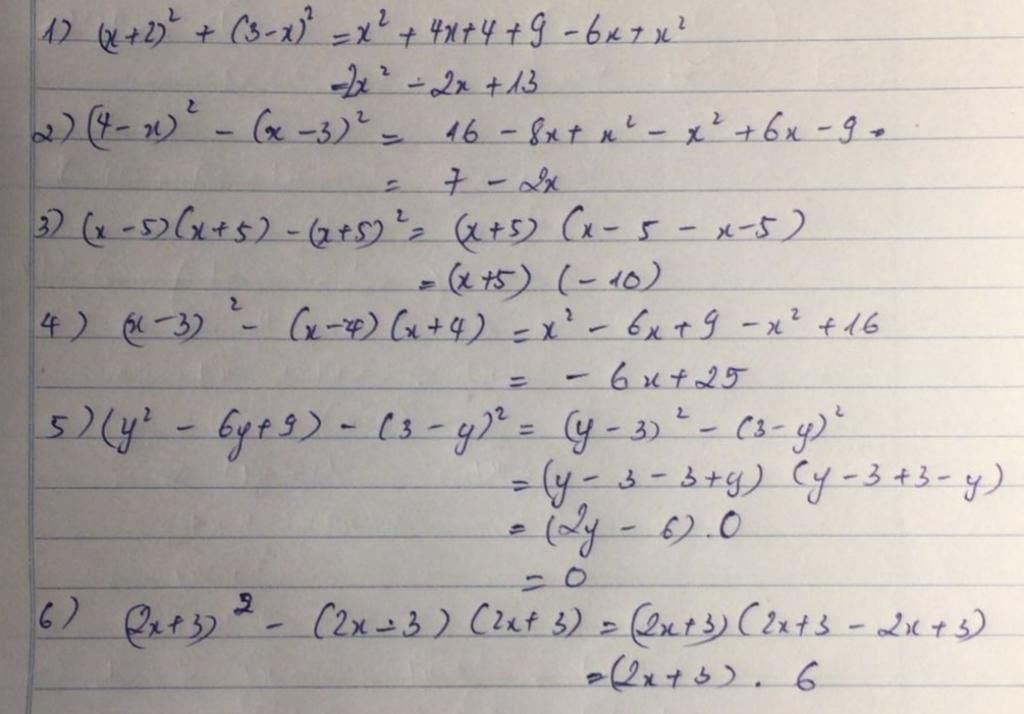 1) (x+2)² + (3-x)² = x² + 4x+4 + 9 - 6x + x²
= 2x² - 2x + 13
2) (4-x)² - (x-3)² = 16 - 8x + x² - x² + 6x - 9.
= 7 - 2x
3) (x-5)(x+5) - (x+5)² = (x+5) (x-5-x-5)
= (x+5) (-10)
4) (x-3)² - (x-4)(x+4) = x² - 6x + 9 - x² + 16
= - 6x + 25
5) (y² - 6y+9) - (3-y)² = (y-3)² - (3-y)²
= (y-3-3+y) (y-3+3-y)
= (2y - 6) . 0
= 0
6) (2x+3)² - (2x-3) (2x+3) = (2x+3) (2x+3 - 2x+3)
= (2x+3) . 6